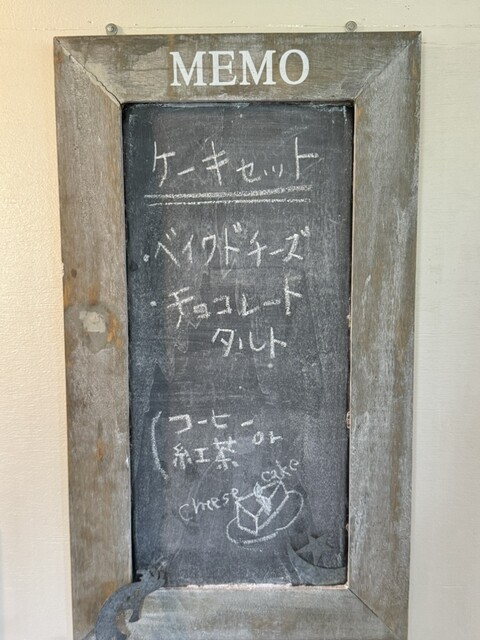 MEMO
ケーキセット
・ベイクドチーズ
・チョコレート
タルト
(コーヒー or
紅茶
cheese cake